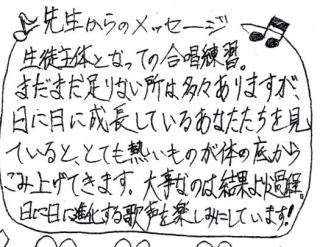 先生からのメッセージ
生徒主体となっての合唱練習。
まだまだ足りない所は多々ありますが、
日に日に成長しているあなたたちを見
ていると、とても熱いものが体の底から
こみ上げてきます。大事なのは結果より過程。
日に日に進化する歌声を楽しみにしています!